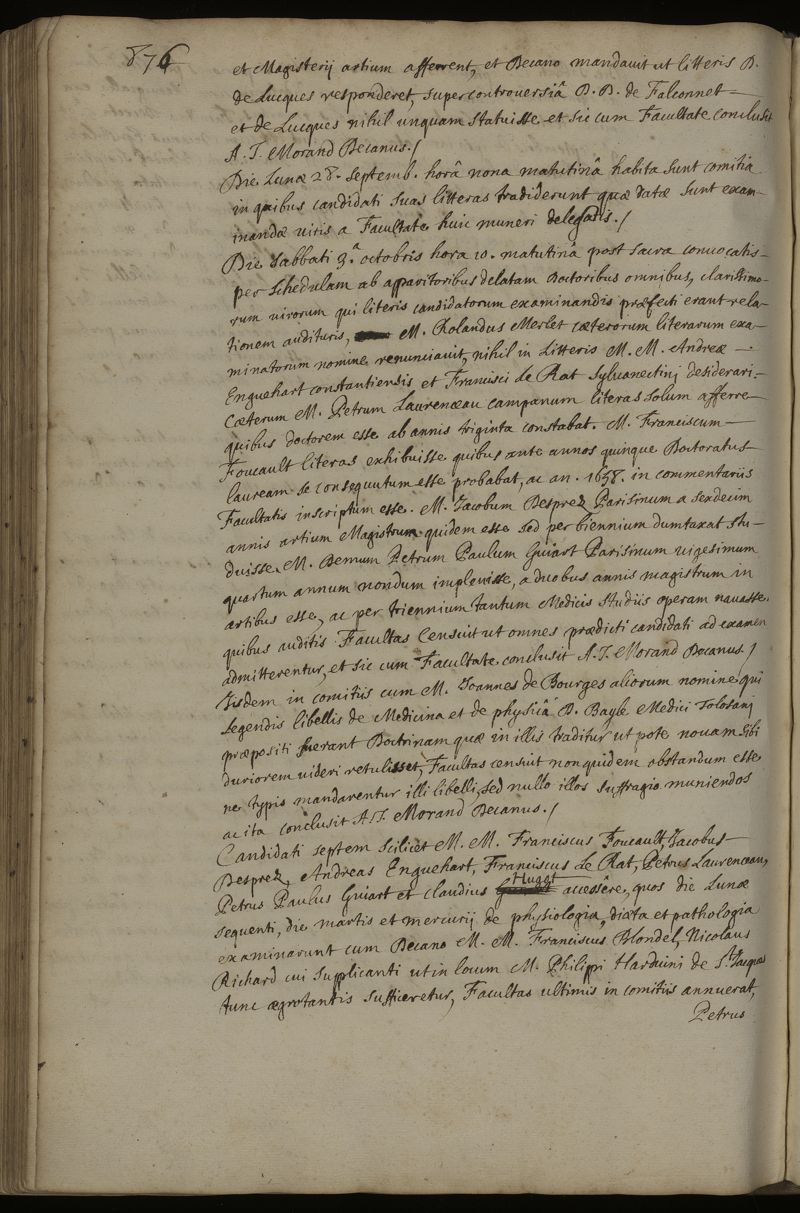 876
et Magisterij artium afferrent, et Decano mandavit ut litteris D.
de Lucques responderet, super controversiâ D. D. de Falconnet
et de Lucques nihil unquam statuisse et sic cum Facultate conclusit
A. J. Morand Decanus./
Die Lunæ 28. septemb. horâ nona matutinâ habita sunt comitia
in quibus candidati suas litteras tradiderunt quæ datæ sunt exam-
inandæ viris a Facultate huic muneri delegatis./
Die Sabbati 3.ª octobris hora 10. matutinâ post sacra convocatis
per schedulam ab apparitoribus delatam Doctoribus omnibus, clarissimo-
rum virorum qui literis candidatorum examinandis præfecti erant rela-
tionem audituris, M. Rolandus Merlet cæterorum literarum exa-
minatorum nomine renunciavit, nihil in Litteris M. M. Andreæ
Enguehart constantiensis et Francisci le Rat sylvanectinj desiderari
Cæterum M. Petrum Laurenceau campanum literas solum afferre
quibus doctorem esse ab annis triginta constabat. M. Franciscum
Foucault literas exhibuisse quibus ante annos quinque Doctoratus
lauream se consequutum esse probabat, ac an. 1658. in commentariis
Facultatis inscriptum esse. M. Jacobum Desprez Parisinum a sexdecim
annis artium Magistrum quidem esse sed per biennium dumtaxat stu-
duisse. M. Demum Petrum Paulum Guiart Parisinum vigesimum
quartum annum nondum implevisse, a duobus annis magistrum in
artibus esse, ac per triennium tantum Medicis studiis operam navasse.
quibus auditis Facultas Censuit ut omnes prædicti candidati ad examen
admitterentur, et sic cum Facultate conclusit A. J. Morand Decanus /
Iisdem in comitiis cum M. Joannes de Bourges aliorum nomine qui
legendis libellis de Medicina et de physicâ D. Bayle Medici Tolosanj
præpositi fuerant Doctrinam quæ in illis traditur ut pote novam sibi
duriorem videri retulisset, Facultas censuit non quidem obstandum esse
ne typis mandarentur illi libelli, sed nullo illos suffragio muniendos
ac ita conclusit A. J. Morand Decanus./
Candidati septem scilicet M. M. Franciscus Foucault, Jacobus
Desprez, Andreas Enguehart, Franciscus Le Rat, Petrus Laurenceau,
Petrus Paulus Guiart et claudius Huget accessêre, quos die Lunæ
sequenti, die martis et mercurij de physiologia, diæta et pathologia
examinarunt cum Decano M. M. Franciscus Blondel, Nicolaus
Richard cui supplicanti ut in locum M. Philippi Harduini de St. Jacques
tunc ægrotantis sufficeretur, Facultas ultimis in comitiis annuerat,
Petrus